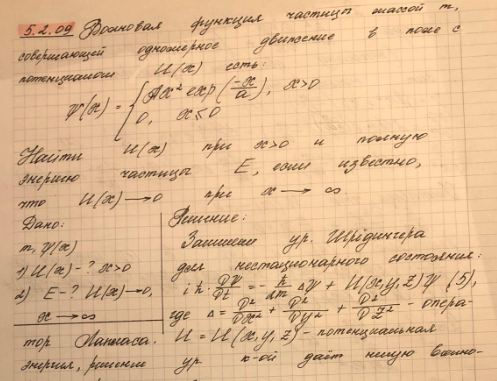 5.2.09 Волновая функция частицы массой m,
совершающей одномерное движение в поле с
потенциалом U(x) есть:
Ψ(x) = { Ax² exp(-x/a), x>0
0, x≤0
Найти U(x) при x>0 и полную
энергию частицы E, если известно,
что U(x) → 0 при x → ∞
Дано:
m, Ψ(x)
1) U(x) - ? x>0
2) E - ? U(x)→0,
x → ∞
Решение:
Запишем ур. Шрёдингера
для нестационарного состояния:
iħ · DΨ/Dt = - ħ/2m ΔΨ + U(x,y,z)Ψ (5),
где Δ = D²/Dx² + D²/Dy² + D²/Dz² - опера-
тор Лапласа. U = U(x,y,z) - потенциальная
энергия, решение ур. к-ой даёт полную волно-